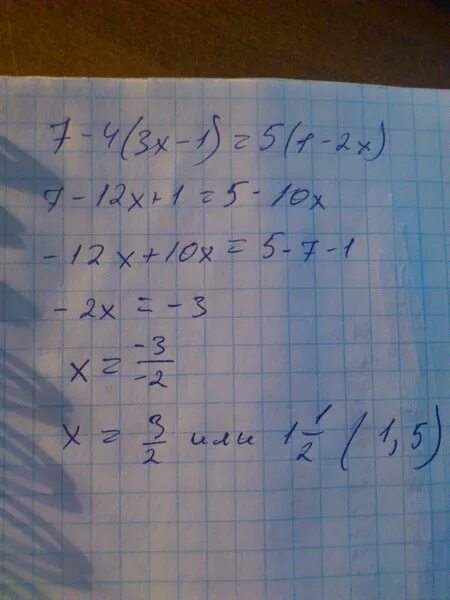 7 - 4(3x - 1) = 5(1 - 2x)
7 - 12x + 1 = 5 - 10x
- 12x + 10x = 5 - 7 - 1
- 2x = - 3
x = -3/-2
x = 3/2 или 1 1/2 (1,5)